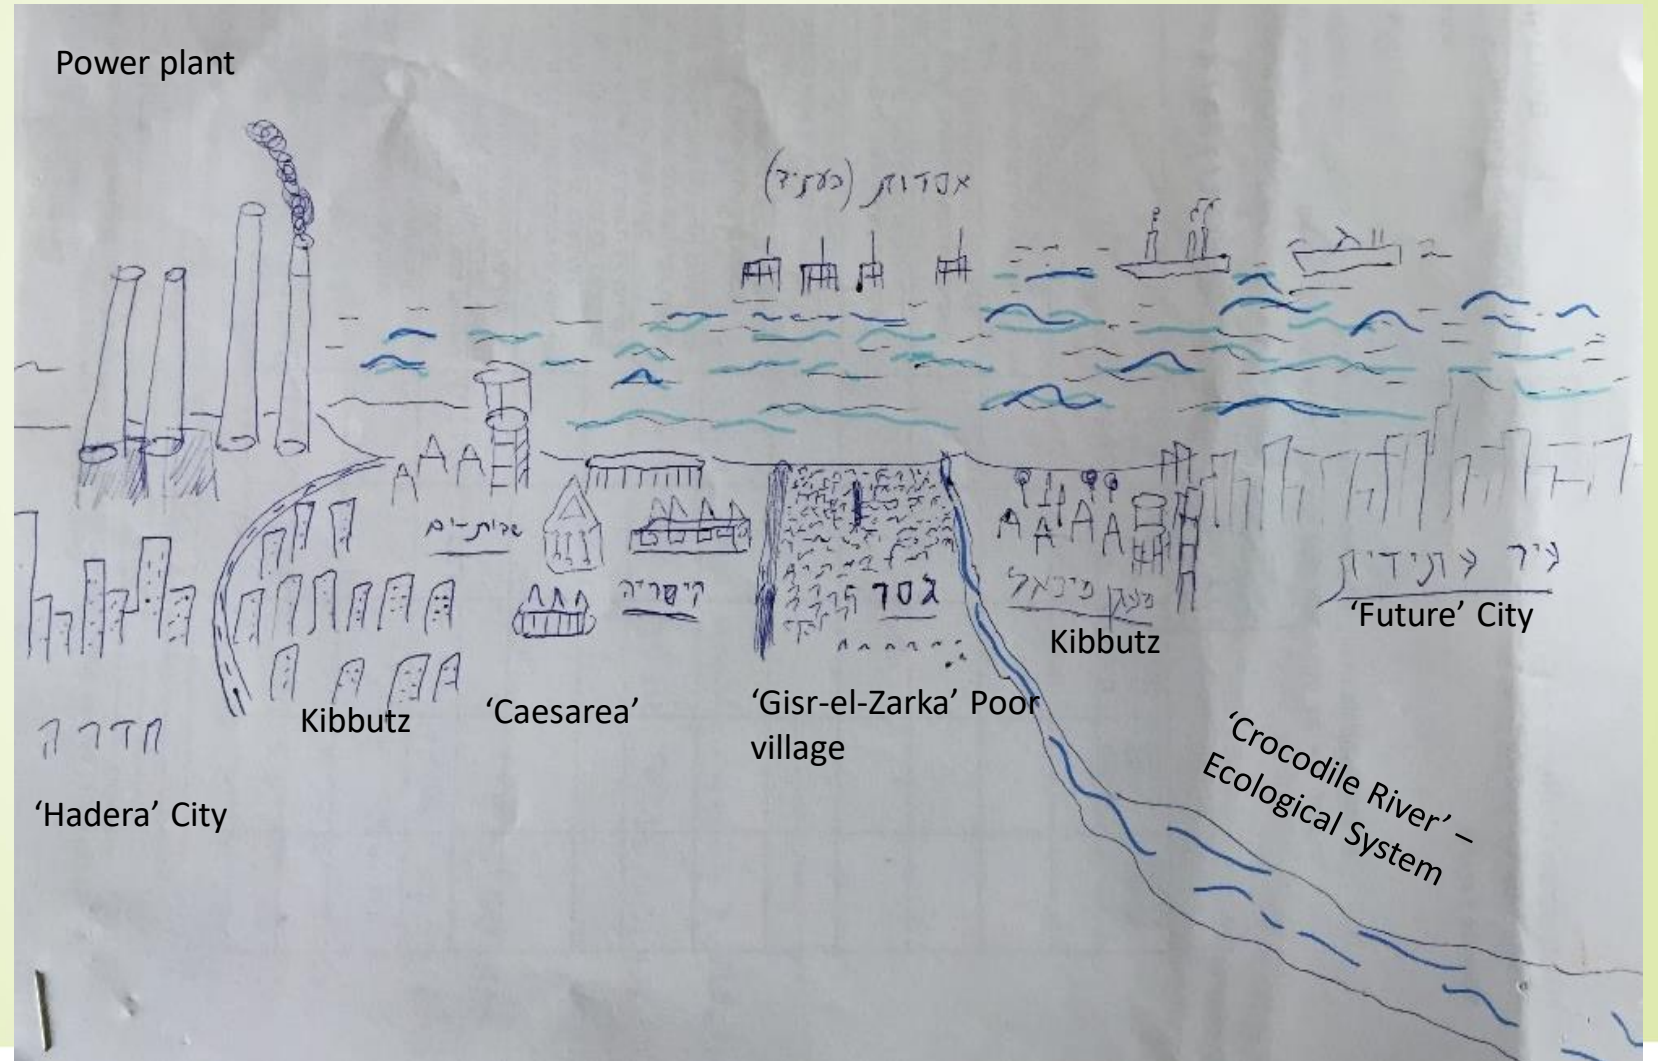 Power plant
אסדות (בעתיד)
שדות-ים
קיסריה
גסר
מעגן מיכאל
עיר עתידית
'Future' City
Kibbutz
Kibbutz
'Caesarea'
'Gisr-el-Zarka' Poor
village
חדרה
'Hadera' City
'Crocodile River' –
Ecological System